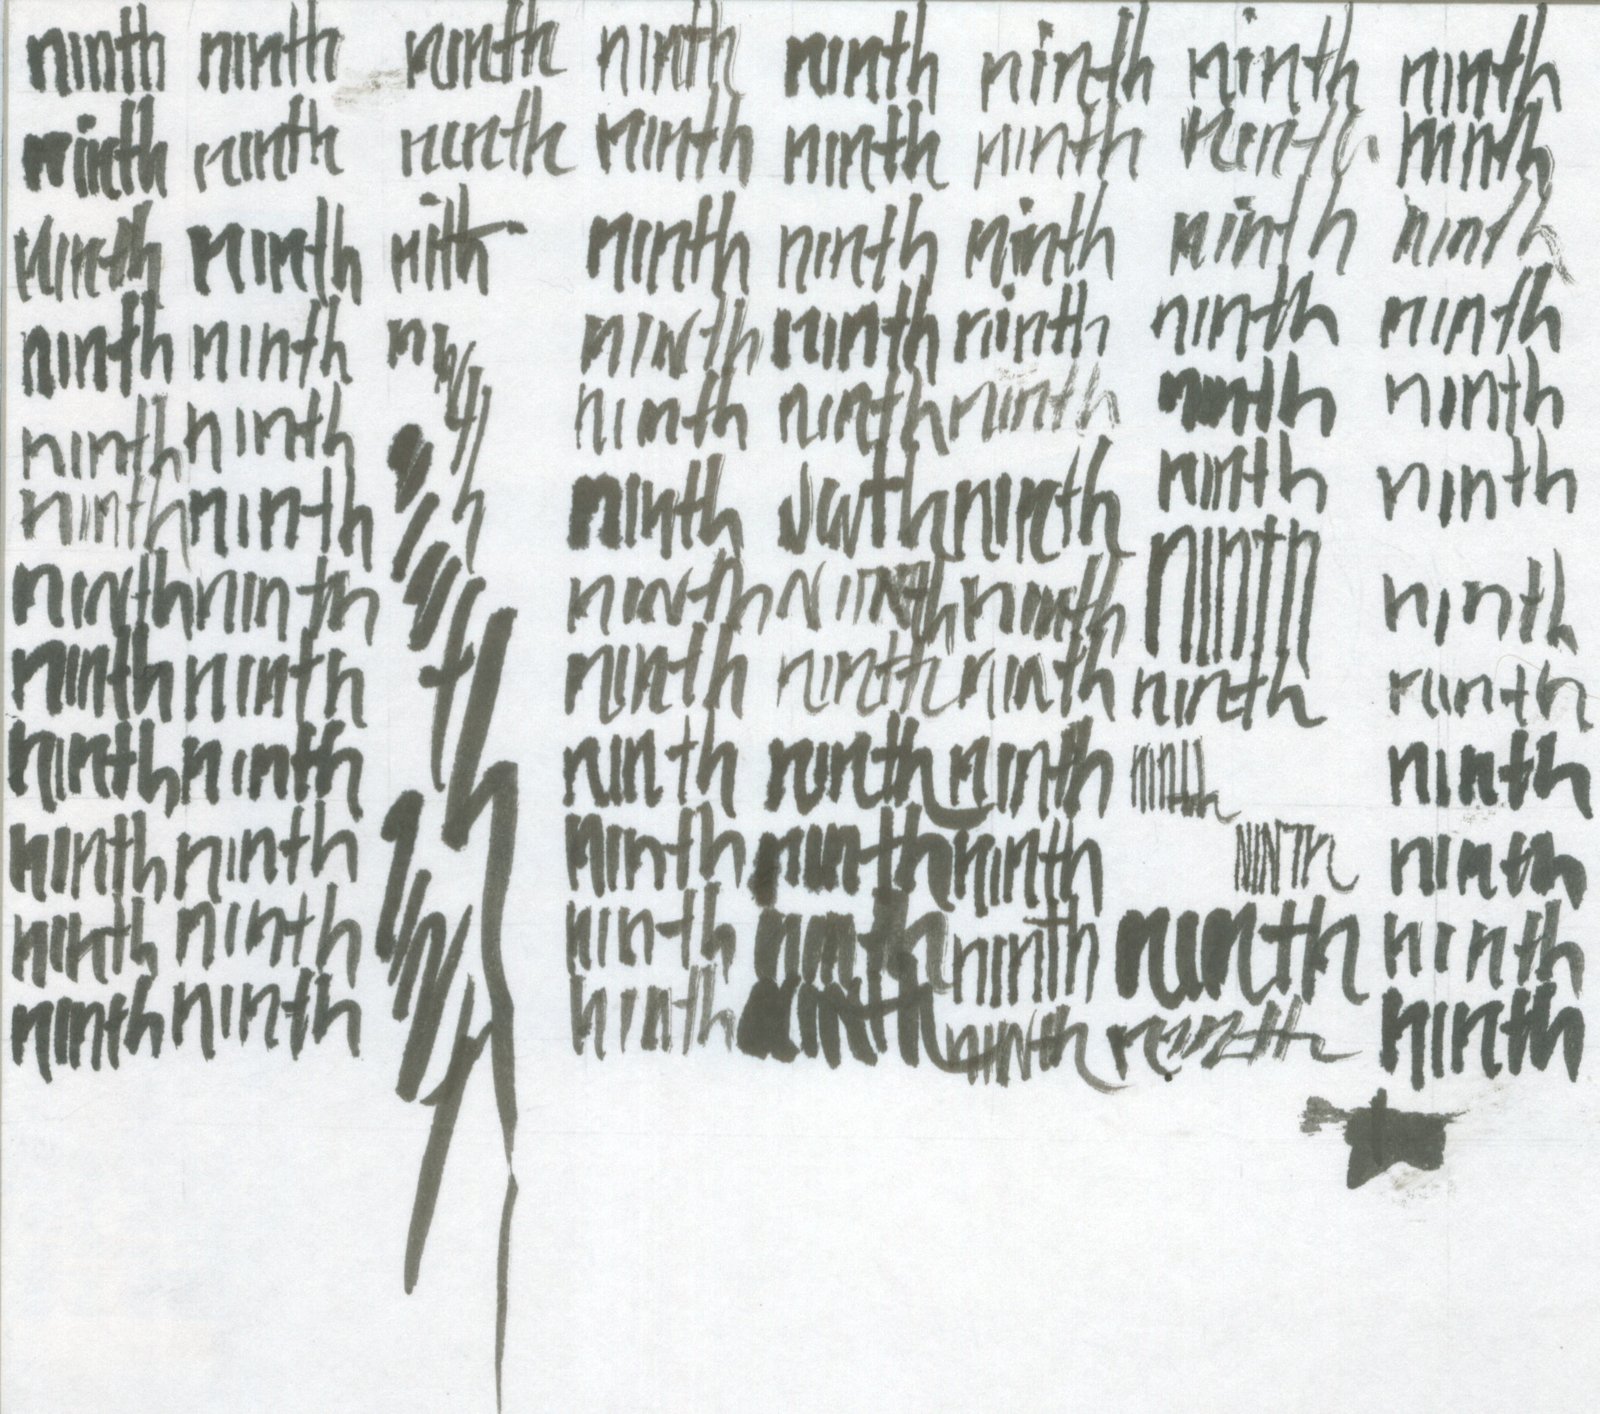 ninth ninth ninth ninth ninth ninth ninth ninth
ninth ninth ninth ninth ninth ninth ninth ninth
ninth ninth nith ninth ninth ninth ninth ninth
ninth ninth ninth ninth ninth ninth ninth
ninth ninth ninth ninth ninth ninth ninth
ninth ninth ninth ninth ninth ninth ninth
ninth ninth ninth ninth ninth ninth ninth
ninth ninth ninth ninth ninth ninth ninth
ninth ninth ninth ninth ninth ninth ninth
ninth ninth ninth ninth ninth NINTH ninth
ninth ninth ninth ninth ninth ninth ninth
ninth ninth ninth ninth ninth ninth ninth